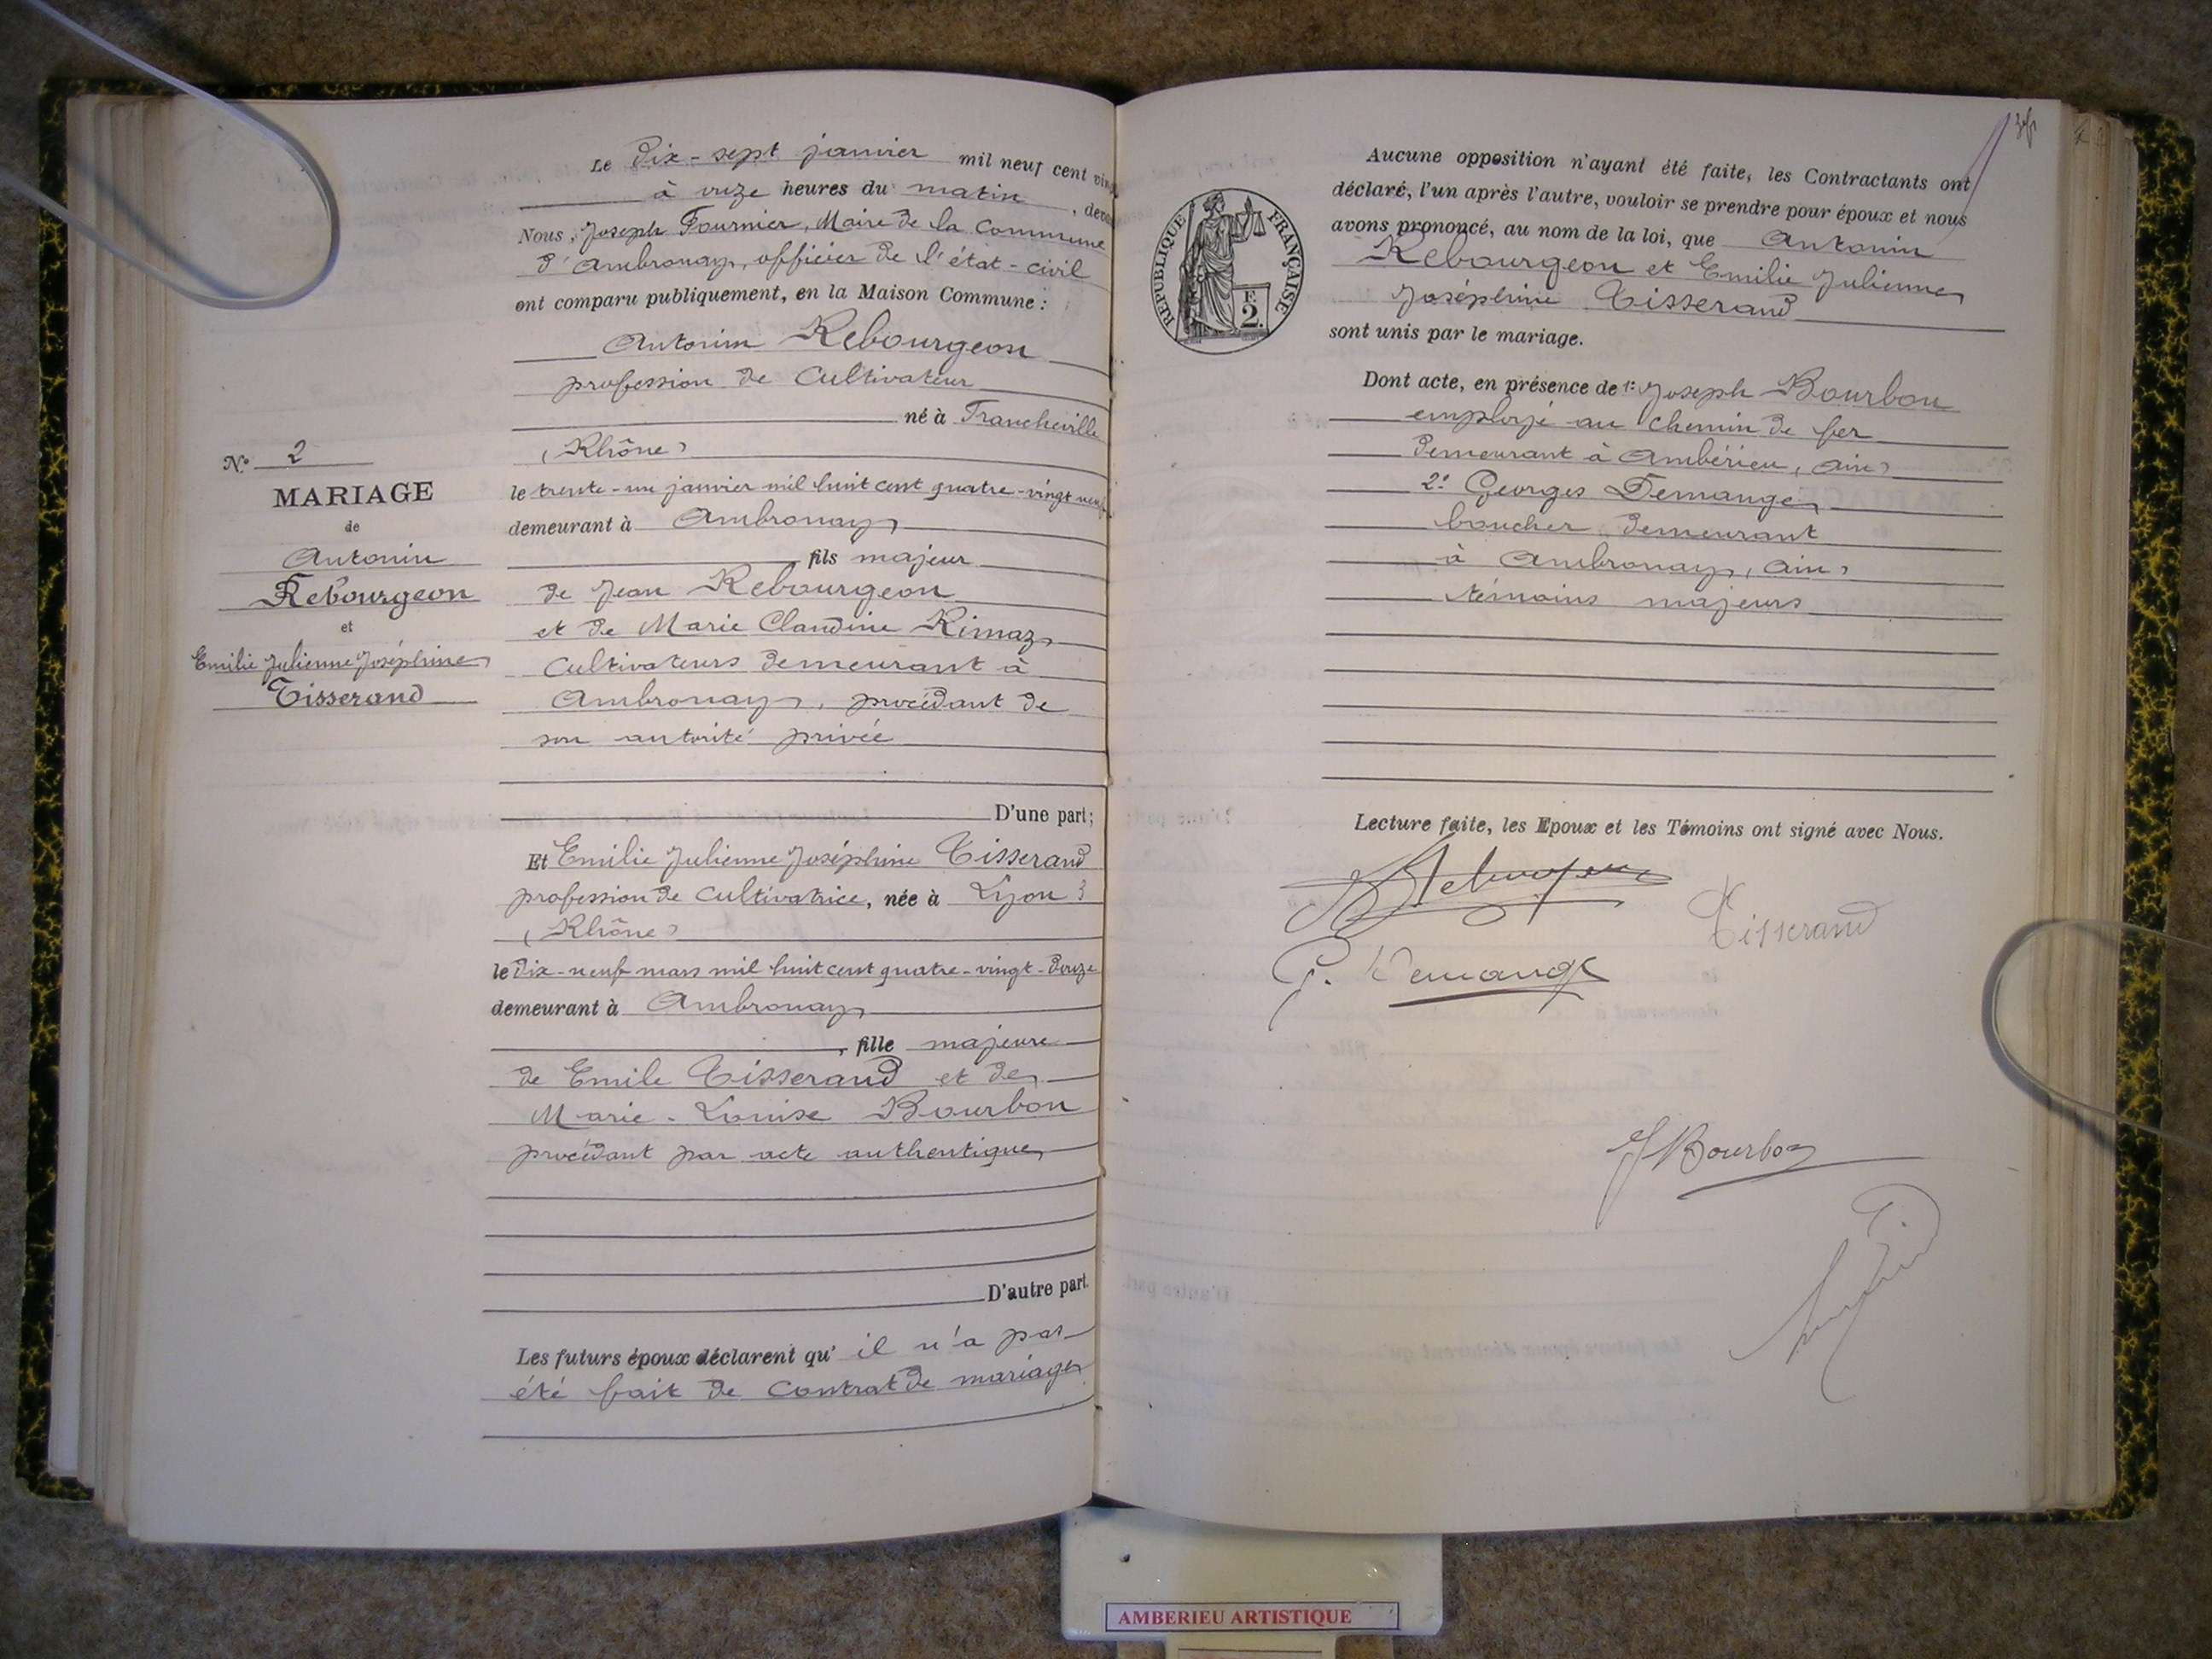 Le dix-sept janvier mil neuf cent vin
à onze heures du matin, deva
Nous, Joseph Fournier, Maire de la Commune
d'Ambronay, officier de l'état-civil
ont comparu publiquement, en la Maison Commune :
Antonin Rebourgeon
profession de Cultivateur
né à Francheville
(Rhône)
le trente-un janvier mil huit cent quatre-vingt neuf
demeurant à Ambronay
fils majeur
de Jean Rebourgeon
et de Marie Claudine Rimaz
Cultivateurs demeurant à
Ambronay, procédant de
son autorité privée
D'une part;
Et Emilie Julienne Joséphine Tisserand
profession de Cultivatrice, née à Lyon 3
(Rhône)
le dix-neuf mars mil huit cent quatre-vingt-douze
demeurant à Ambronay
, fille majeure
de Emile Tisserand et de
Marie-Louise Bourbon
procédant par acte authentique
D'autre part.
Les futurs époux déclarent qu'il n'a pas
été fait de Contrat de mariage
N° 2
MARIAGE
de
Antonin
Rebourgeon
et
Emilie Julienne Joséphine
Tisserand
REPUBLIQUE FRANÇAISE
F.
2.
Aucune opposition n'ayant été faite, les Contractants ont
déclaré, l'un après l'autre, vouloir se prendre pour époux et nous
avons prononcé, au nom de la loi, que Antonin
Rebourgeon et Emilie Julienne
Joséphine Tisserand
sont unis par le mariage.
Dont acte, en présence de 1° Joseph Bourbon
employé au Chemin de fer
demeurant à Ambérieu, (Ain)
2° Georges Demange
boucher demeurant
à Ambronay, (Ain)
témoins majeurs
Lecture faite, les Epoux et les Témoins ont signé avec Nous.
Tisserand
G. Demange
J Bourbon
AMBERIEU ARTISTIQUE